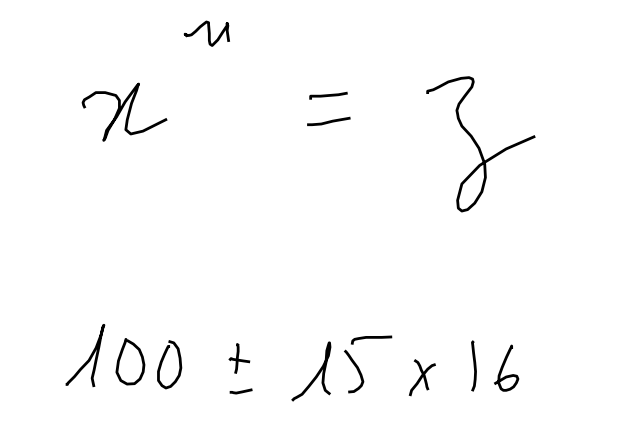 xⁿ = z
100 ± 15 x 16